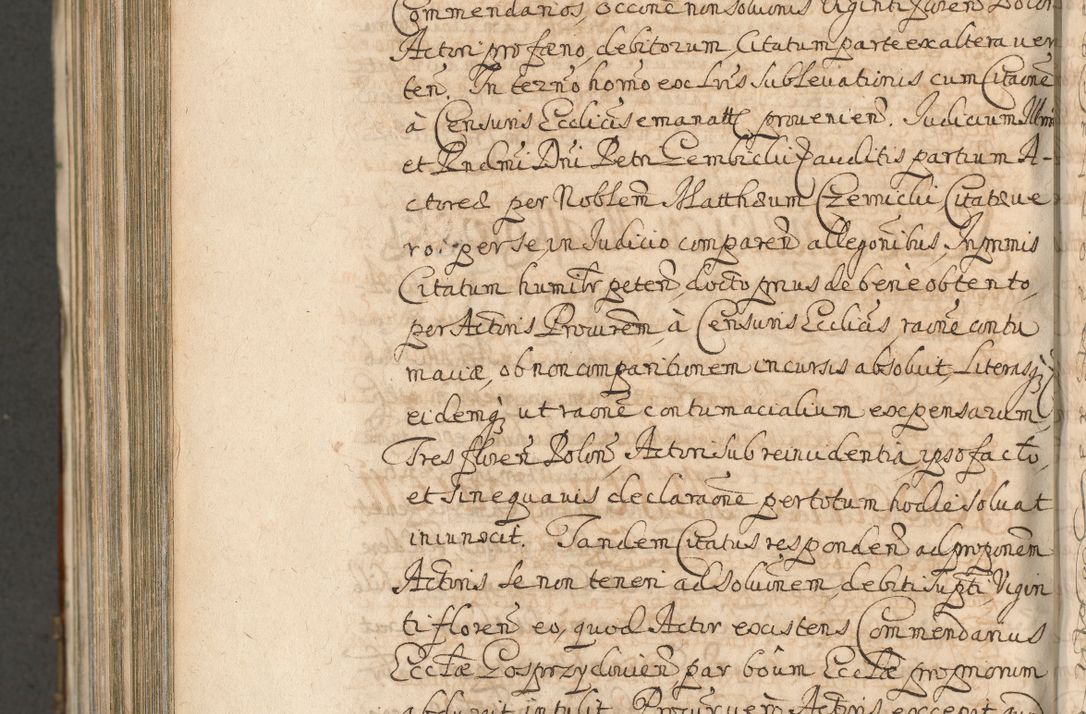 Commendarios, occone non solvonis Viginti floren Polon
Actori pro fæno, debitorum Citatum parte ex altera ven
ten. In termo homo ex Lris sublevationis cum Citaone
à Censuris Ecclicis emanatt provenien. Judicium Illmi
et Rndmi Dni Petri Gembicki, auditis partium A-
ctorea per Noblem Matthæum Czernicki, Citatæ ve
ro per se in Judicio comparen allegonibus, In primis
Citatum humilr peten, docto prius de bene obtento,
per Actoris Procurem, à Censuris Ecclicis, raone contu
maciæ, ob non comparitionem incursis absolvit, Literasq
eidemq, ut raone contumacialium expensarum
Tres floren Polon, Actori sub reincidentia ipso facto,
et sine quavis declaraone per totum hodie solvat
iniunxit. Tandem Citatus responden ad proponem
Actoris se non teneri ad solvonem, debiti supti Vigin
ti floren eo, quod Actor existens Commendarius
Ecclæ Gosprzydovien par boum Ecclæ propriorum
abduxit intulit. Procur vero Actoris excepit